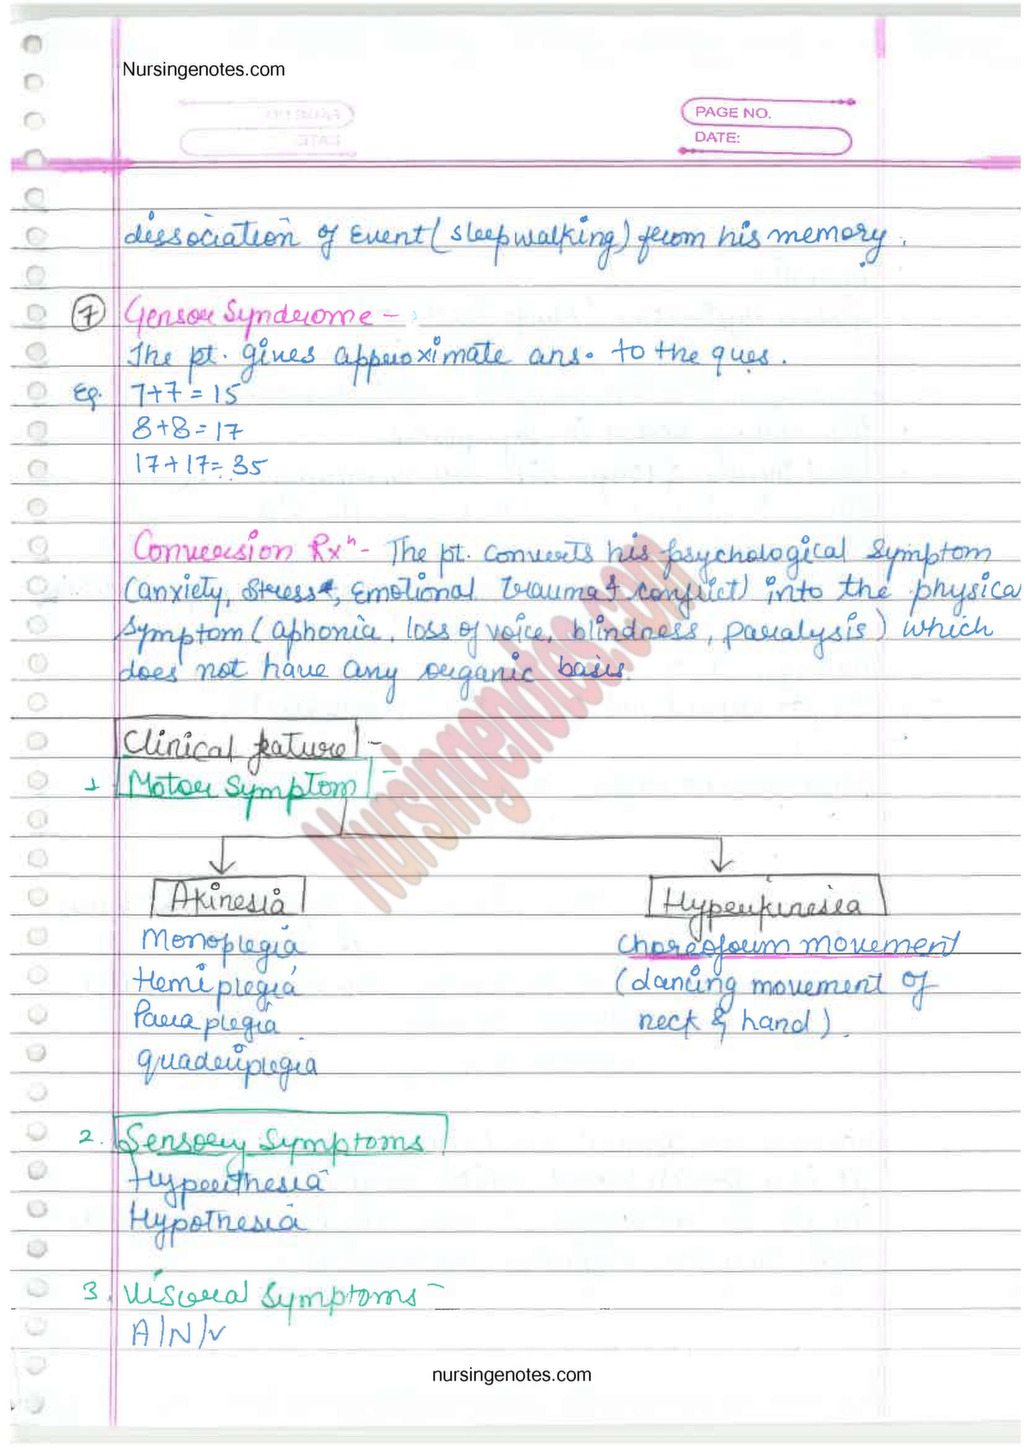 Nursingenotes.com
PAGE NO.
DATE:
dissociation of Event (sleepwalking) from his memory.
7 Gensor Syndrome -
The pt. gives approximate ans. to the ques.
Eg. 7+7=15
8+8=17
17+17=35
Conversion Rxn - The pt. converts his psychological symptom
(anxiety, stress, Emotional trauma & conflict) into the physica
symptom (aphonia, loss of voice, blindness, paralysis) which
does not have any organic basis.
Clinical feature -
1 Motor Symptom -
Akinesia Hyperkinesia
Monoplegia choreoform movement
Hemiplegia (dancing movement of
Paraplegia neck & hand).
quadriplegia
2. Sensory Symptoms
Hyperthesia
Hypothesia
3. Visceral Symptoms -
A/N/V
Nursingenotes.com
nursingenotes.com